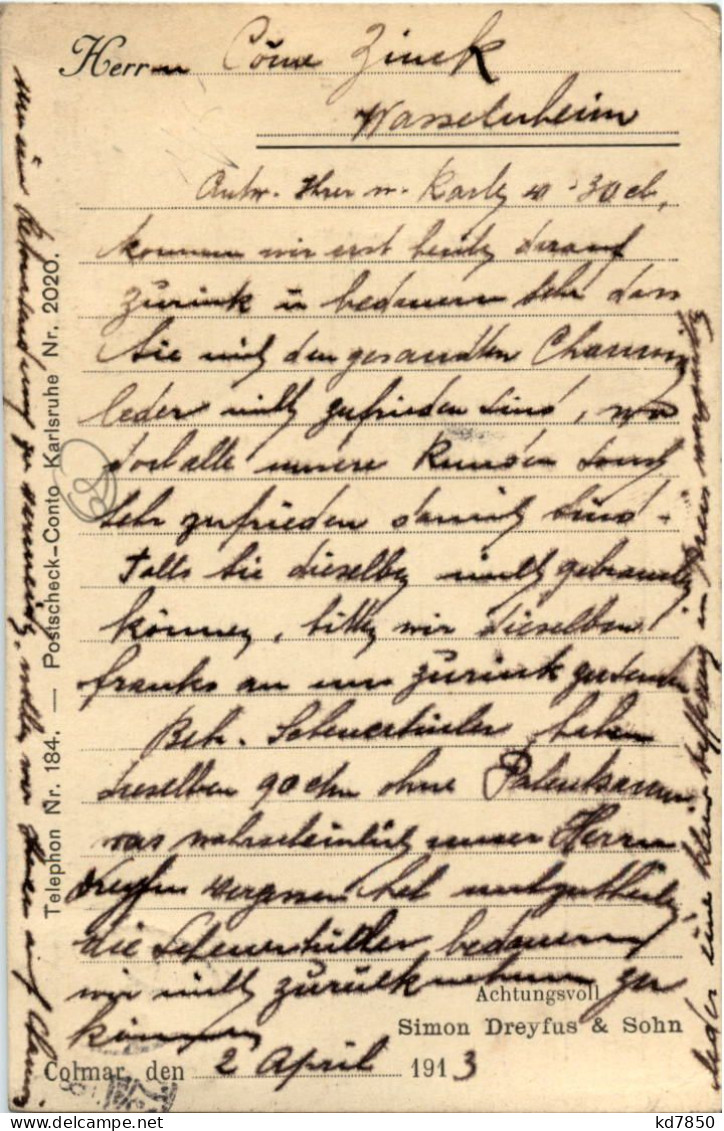 Herrn Côme Zinck
Wasselnheim
Antw. Ihrer w. Karte v. 30 ct.
kommen wir erst heute darauf
zurück u bedauern sehr dass
Sie mit den gesandten
leder nicht zufrieden sind, wo
doch alle unsere Kunden sonst
sehr zufrieden damit sind.
Falls Sie dieselben nicht gebrauchen
können, bitte wir dieselben
franko an uns zurück zu senden
Betr. haben
dieselben 90 ctm ohne
was wahrscheinlich unser Herrn
Dreyfus vergessen hat mitzutheilen,
die bedauern
wir nicht zurücknehmen zu
können
Achtungsvoll
Simon Dreyfus & Sohn
Colmar, den 2 April 1913
Telephon Nr. 184. — Postscheck-Conto Karlsruhe Nr. 2020.
zu vermeiden, wollen wir Ihnen auf
leder eine kleine Differenz im Preis
kd7850